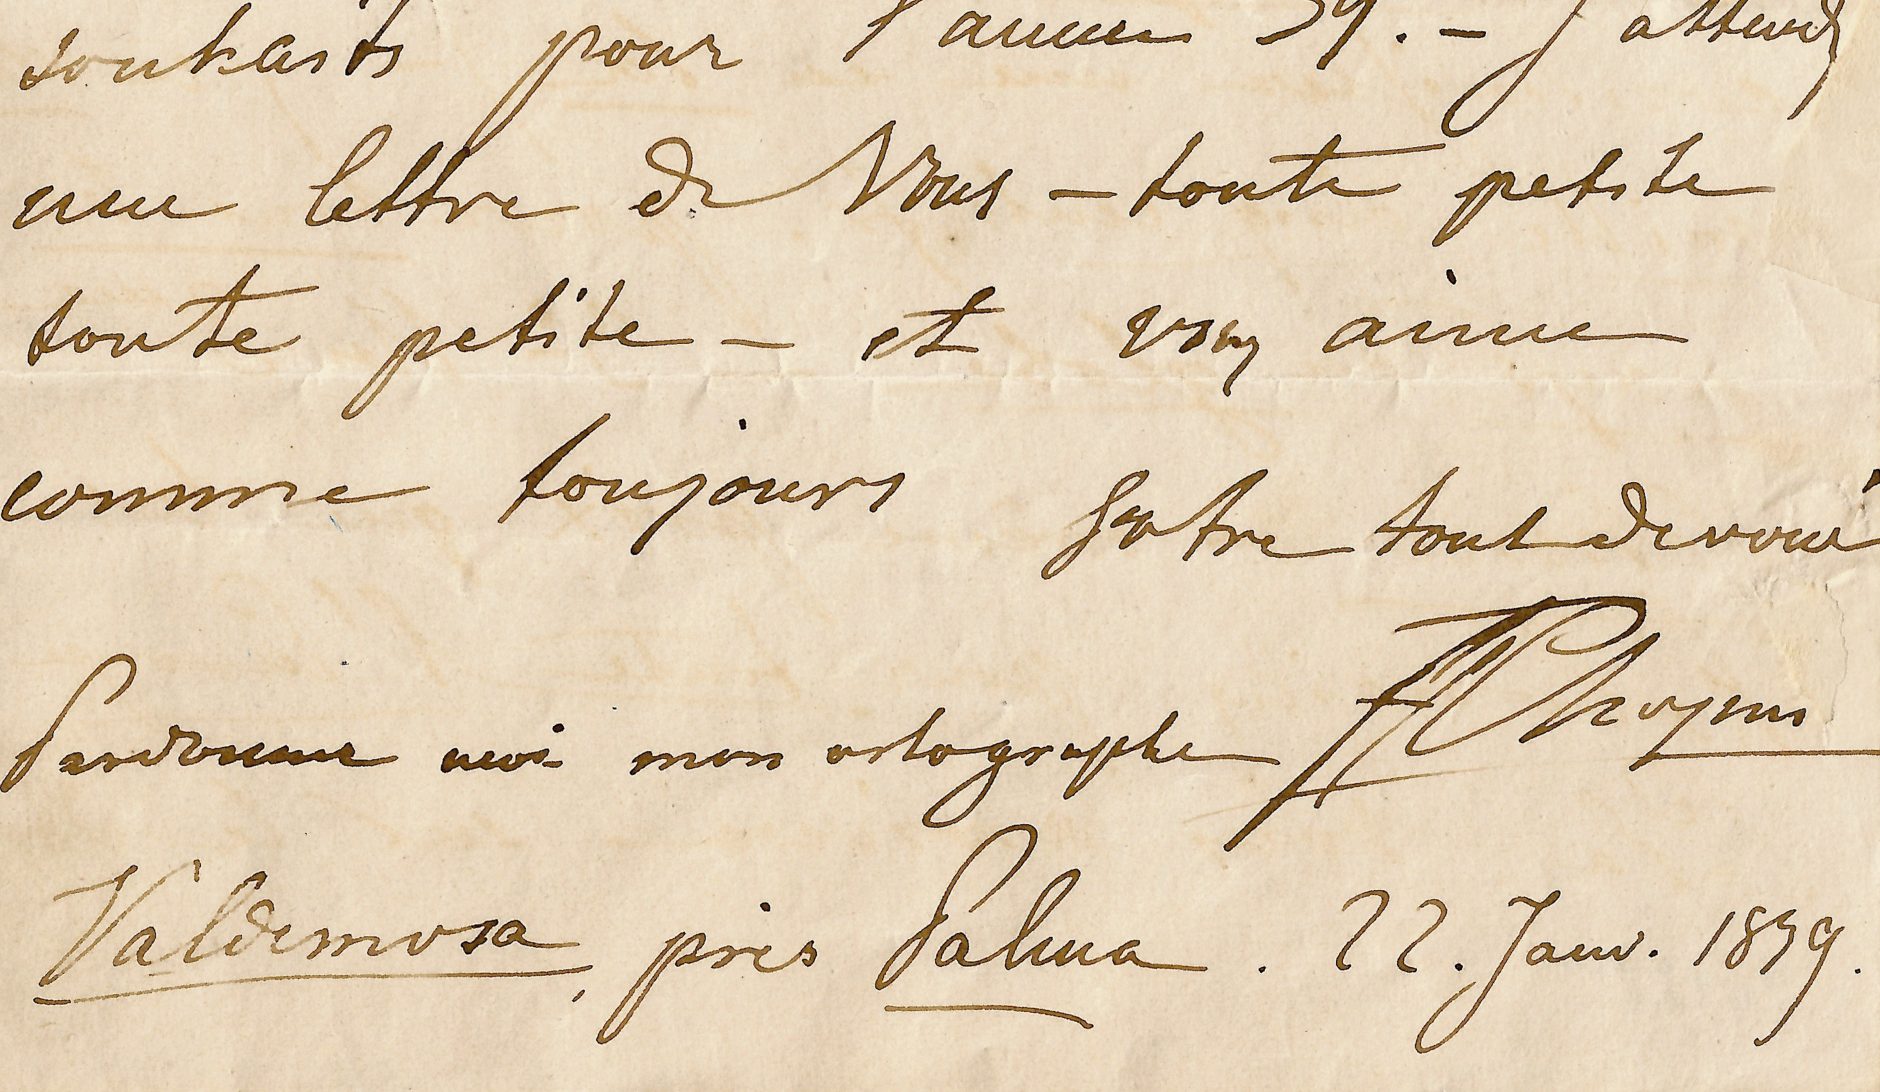 souhaits pour l'année 39. – J'attends
une lettre de Vous – toute petite
toute petite – et vous aime
comme toujours
Votre tout devoué
Pardonne moi mon ortographe FChopin
Valdemosa, près Palma. 22. Janv. 1839.